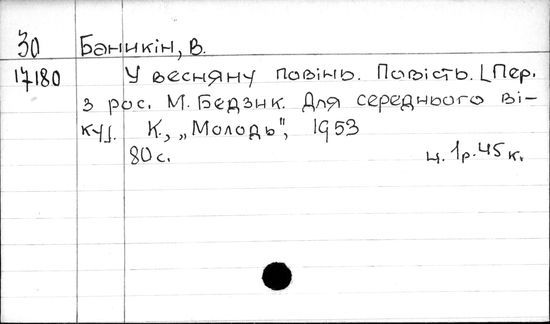 30 Баныкін, В.
17180 У весняну повінь. Повість. [Пер.
з рос. М. Бедзык. Для середнього ві-
ку]. К., „Молодь", 1953
80 с. ц. 1р. 45 к.